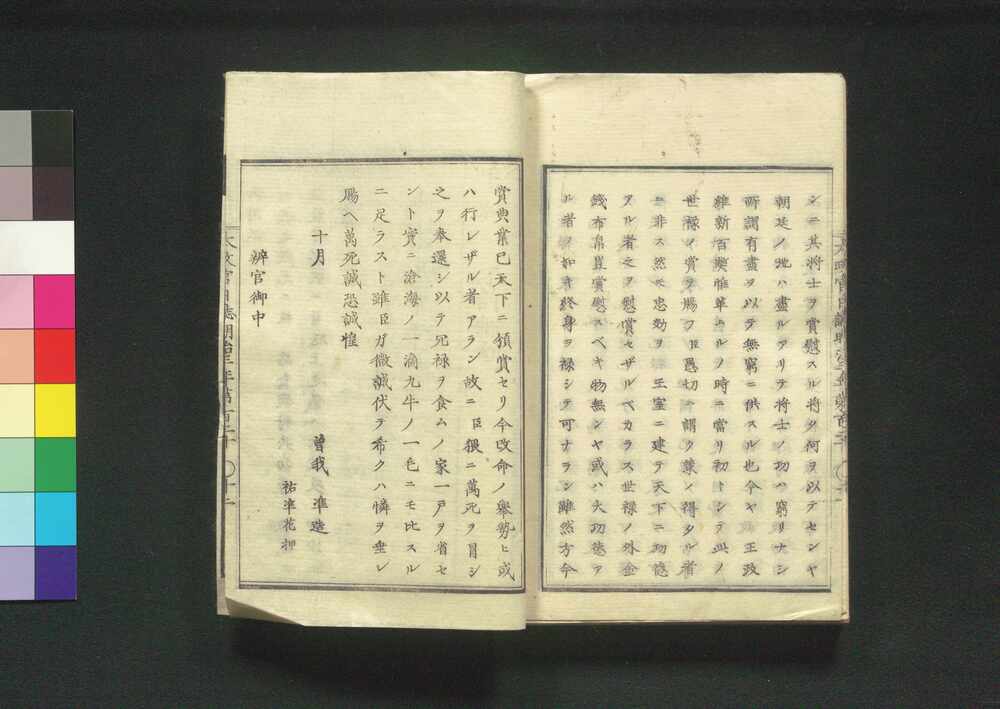 シニ其將士ヲ賞慰スル將タ何ヲ以テセンヤ
朝廷ノ地ハ盡ルアリテ將士ノ功ハ窮リナシ
所謂有盡ヲ以テ無窮ニ供スル也今ヤ 王政
維新百弊惟革ムルノ時ニ當リ初トシテ此ノ
世禄ノ賞ヲ賜フ臣愚切ニ謂ク策ノ得タル者
ニ非スト然ハ忠効ヲ 王室ニ建テ天下ニ功德
アル者之ヲ慰賞セザルベカラス世禄ノ外金
錢布帛豈賞慰スベキ物無シヤ或ハ大功德ア
ル者ヲ如キ終身ヲ禄シテ可ナラン雖然方今
賞典業已天下ニ領賞セリ今改命ノ擧勢ヒ或
ハ行レザル者アラン故ニ臣猥ニ萬死ヲ冒シ
之ヲ奉還シ以テ冗禄ヲ食ムノ家一戸ヲ省セ
ント實ニ滄海ノ一滴九牛ノ一毛ニモ比スル
ニ足ラスト雖臣ガ微誠伏テ希クハ憐ヲ垂レ
賜ヘ萬死誠恐誠惶
十月 曽我準造
祐準花押
辨官御中
太政官日誌明治三年第百二十 〇十二